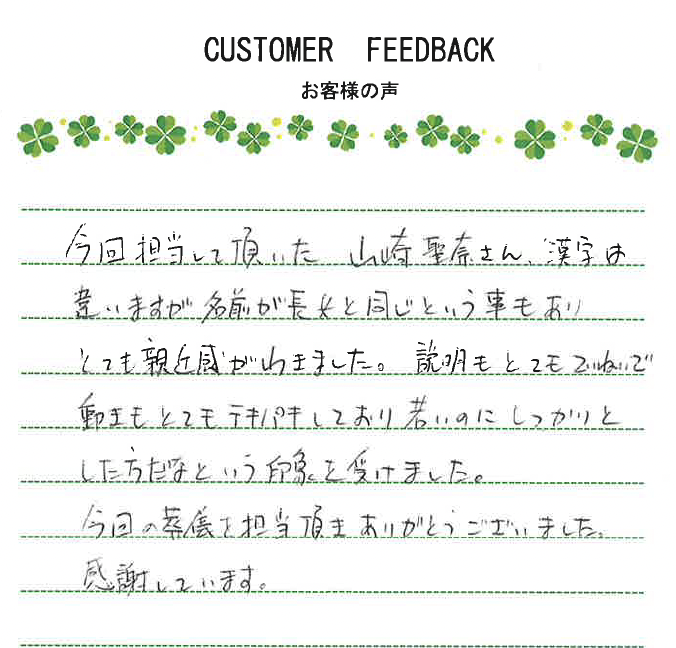 CUSTOMER FEEDBACK
お客様の声
今回担当して頂いた 山崎聖奈さん、漢字は
違いますが名前が長女と同じという事もあり
とても親近感がわきました。説明もとてもていねいで
動きもとてもテキパキしており若いのにしっかりと
した方だなという印象を受けました。
今回の葬儀を担当頂きありがとうございました。
感謝しています。